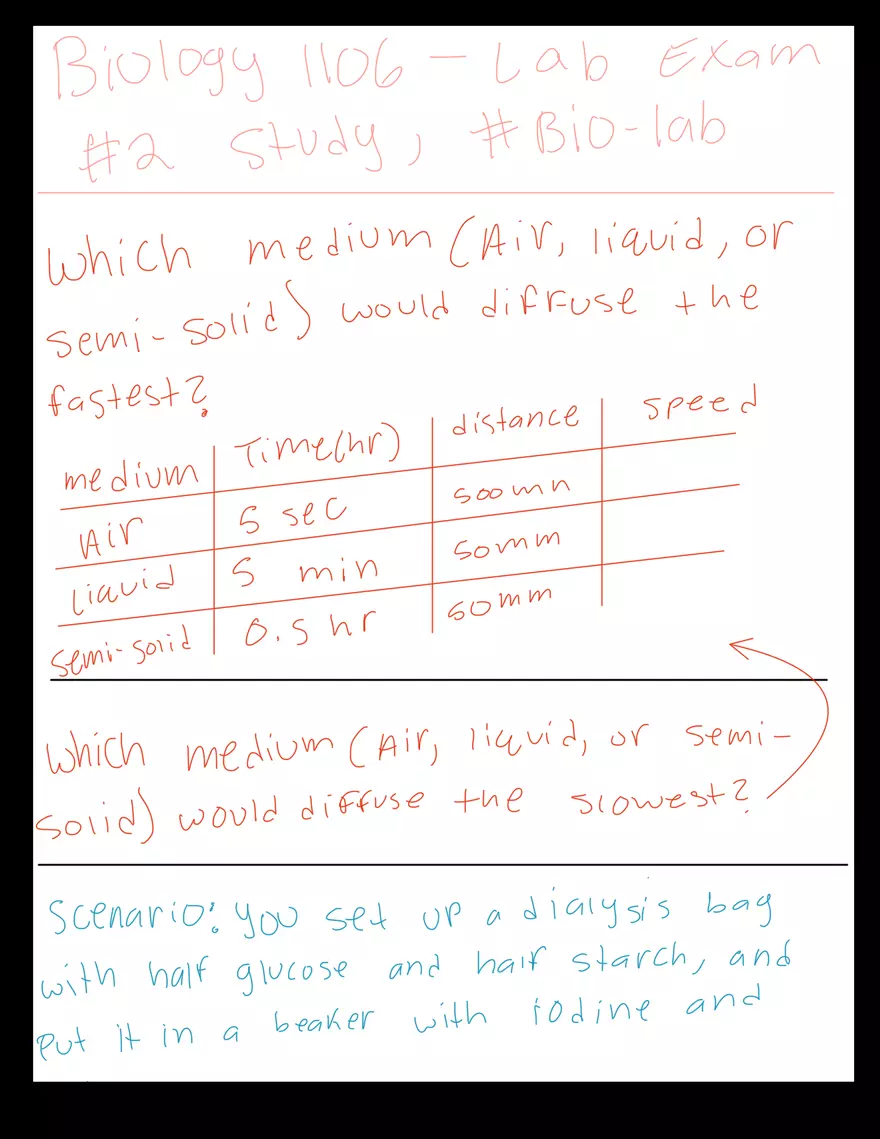 Biology 1106 - Lab Exam
#2 Study, #Bio-lab
Which medium (Air, liquid, or
semi-solid) would diffuse the
fastest?
medium Time(hr) distance speed
Air 5 sec 500mn
liquid 5 min 50mm
semi-solid 0.5 hr 50mm
Which medium (Air, liquid, or semi-
solid) would diffuse the slowest?
Scenario: You set up a dialysis bag
with half glucose and half starch, and
put it in a beaker with iodine and